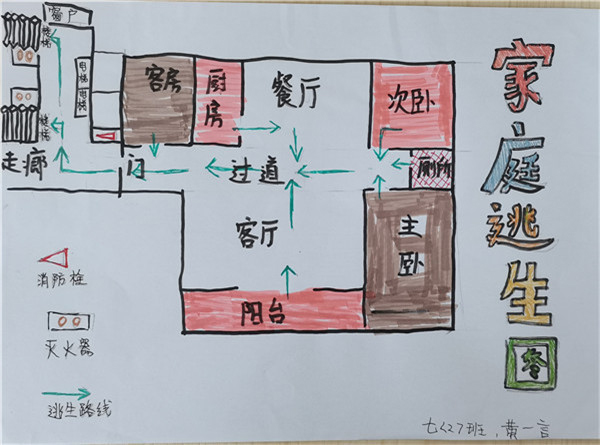 窗户
楼梯
电梯
电梯
楼梯
走廊
门
客房
厨房
餐厅
次卧
厕所
过道
客厅
主卧
阳台
消防栓
灭火器
逃生路线
家庭逃生图
七(2)班,黄一言